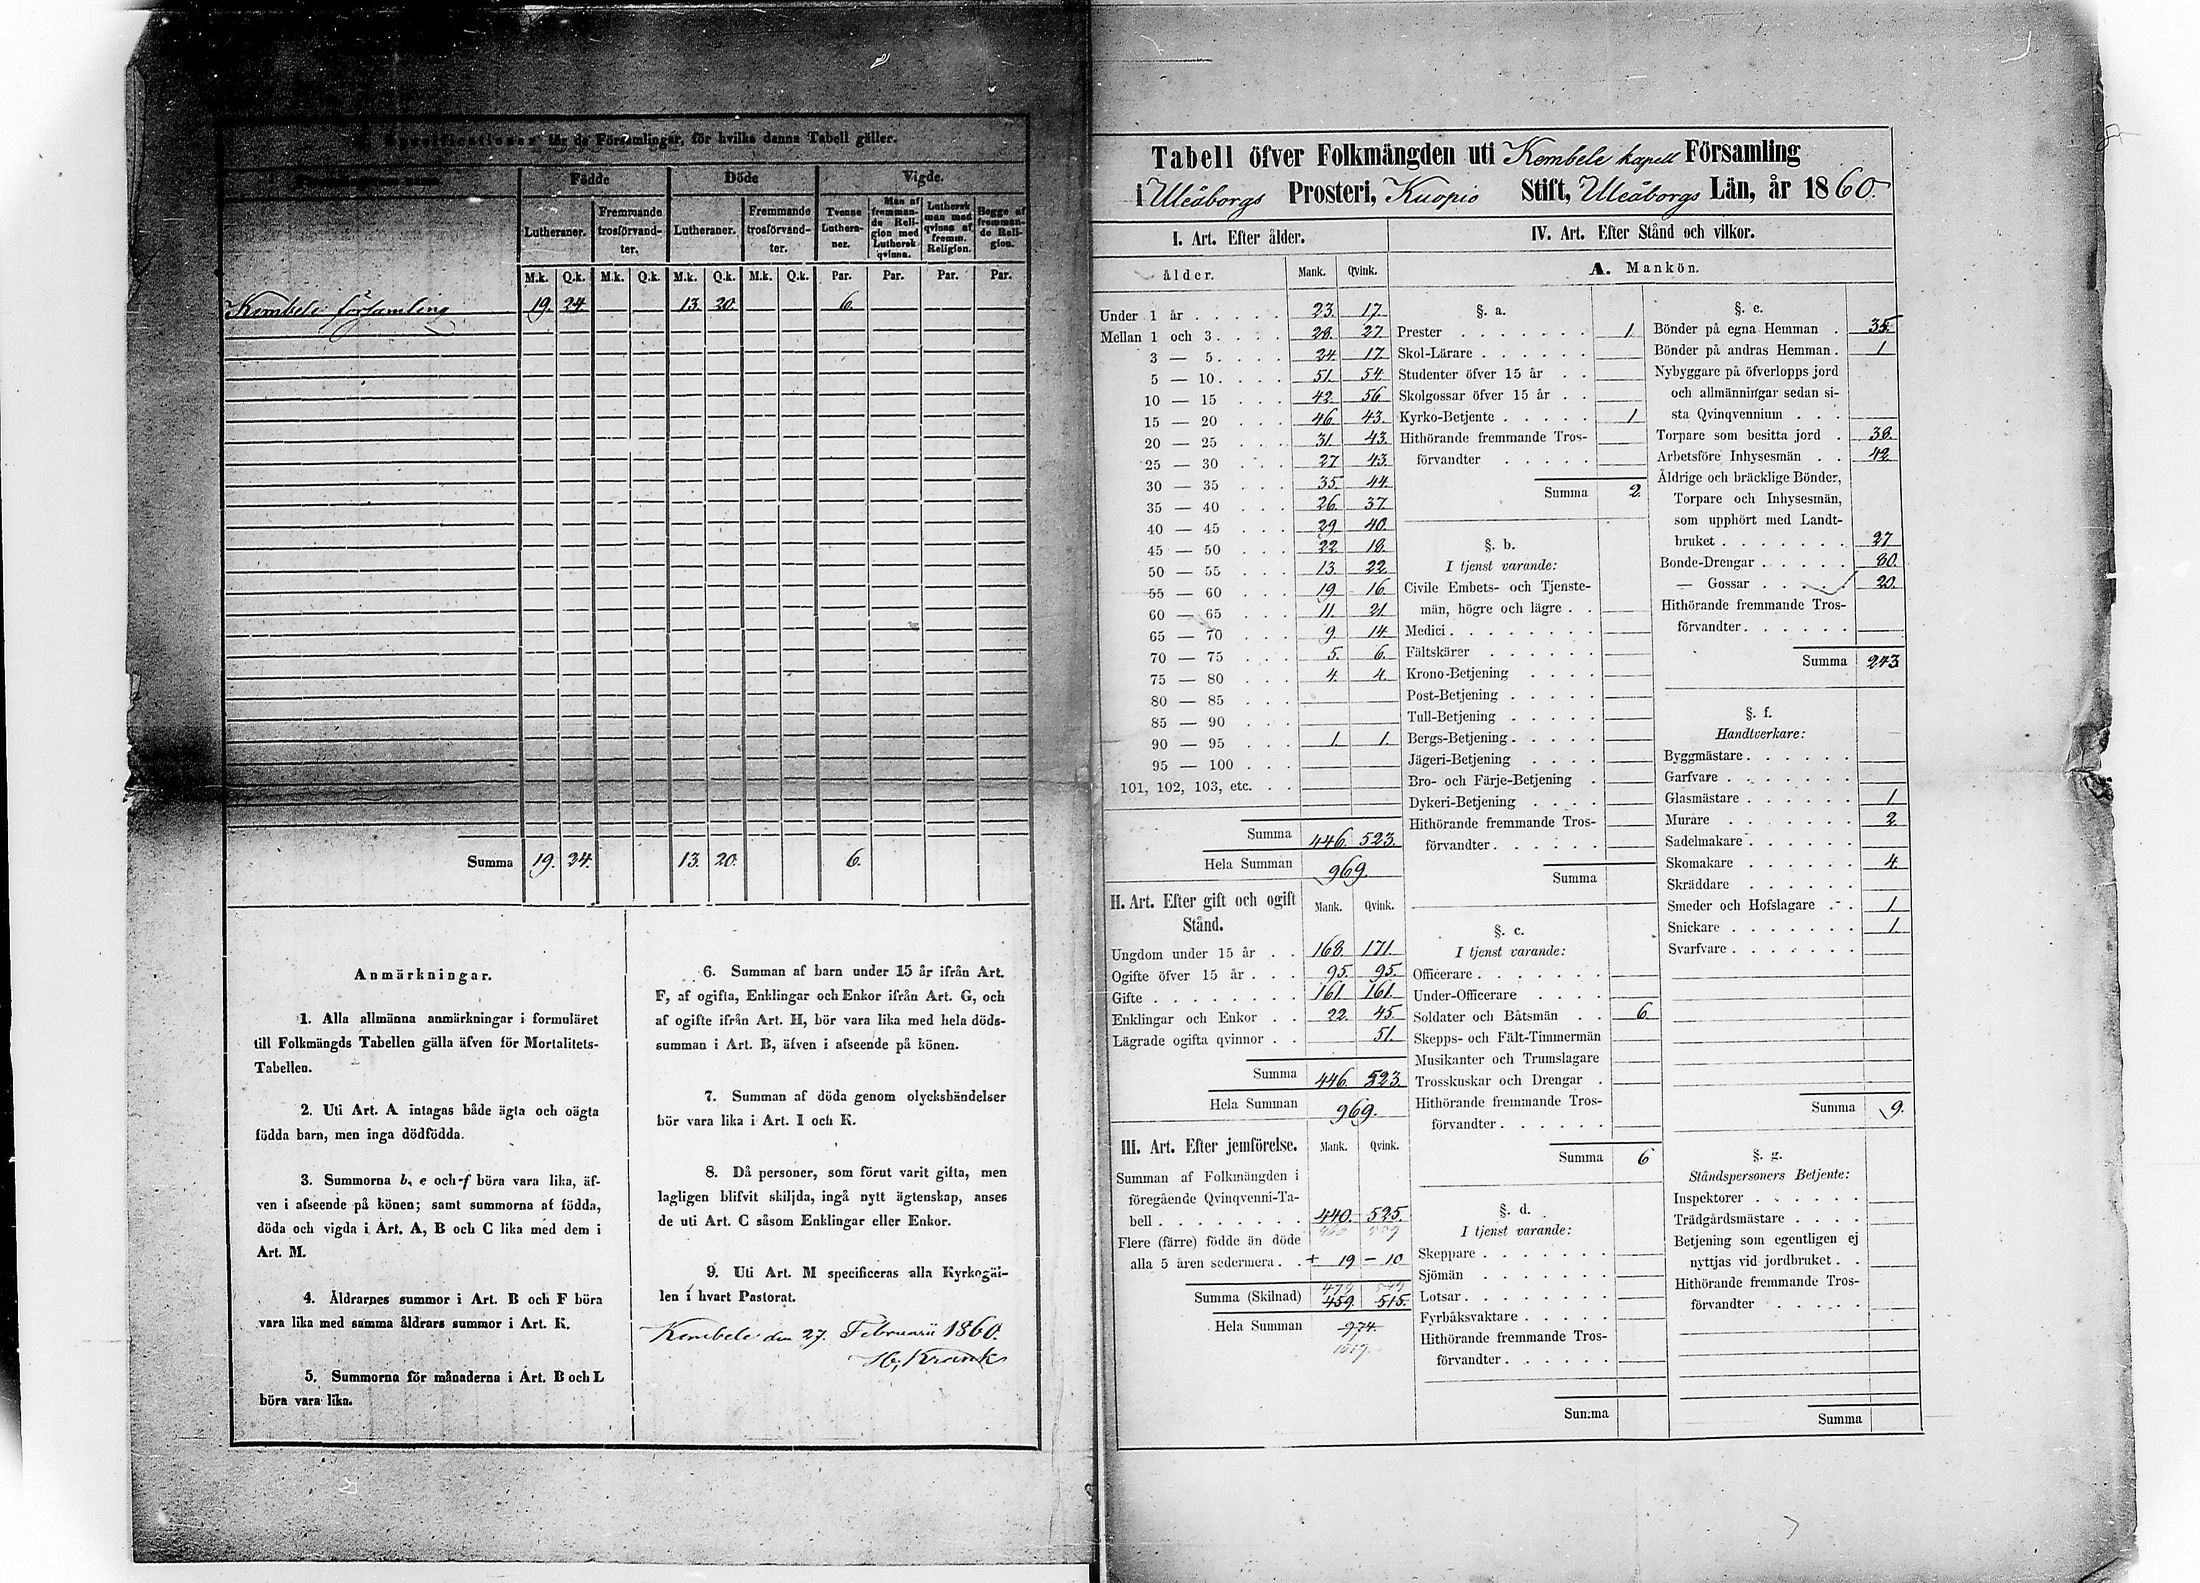 Specificationer för de Församlingar, för hvilka denna Tabell gäller.
Födde Döde Vigde.
Lutheraner. Fremmande trosförvandter. Lutheraner. Fremmande trosförvandter. Tvenne Lutheraner. Man af fremmande Religion med Luthersk qvinna. Luthersk man med qvinna af fremm. Religion. Begge af fremmande Religion.
M.k. Q.k. M.k. Q.k. M.k. Q.k. M.k. Q.k. Par. Par. Par. Par.
Kembele församling 19. 24. 13. 20. 6.
Summa 19. 24. 13. 20. 6.
Anmärkningar.
1. Alla allmänna anmärkningar i formuläret
till Folkmängds Tabellen gälla äfven för Mortalitets-
Tabellen.
2. Uti Art. A intagas både ägta och oägta
födda barn, men inga dödfödda.
3. Summorna b, e och f böra vara lika, äf-
ven i afseende på könen; samt summorna af födda,
döda och vigda i Art. A, B och C lika med dem i
Art. M.
4. Åldrarnes summor i Art. B och F böra
vara lika med samma åldrars summor i Art. K.
5. Summorna för månaderna i Art. B och L
böra vara lika.
6. Summan af barn under 15 år ifrån Art.
F, af ogifta, Enklingar och Enkor ifrån Art. G, och
af ogifte ifrån Art. H, bör vara lika med hela döds-
summan i Art. B, äfven i afseende på könen.
7. Summan af döda genom olyckshändelser
bör vara lika i Art. I och K.
8. Då personer, som förut varit gifta, men
lagligen blifvit skiljda, ingå nytt ägtenskap, anses
de uti Art. C såsom Enklingar eller Enkor.
9. Uti Art. M specificeras alla Kyrkogäl-
len i hvart Pastorat.
Kembele den 27. Februarii 1860.
Tabell öfver Folkmängden uti Kembele kapell Församling
i Uleåborgs Prosteri, Kuopio Stift, Uleåborgs Län, år 1860.
I. Art. Efter ålder.
ålder. Mank. Qvink.
Under 1 år 23. 17.
Mellan 1 och 3. 28. 27.
3 — 5. 24. 17.
5 — 10. 51. 54.
10 — 15 42. 56.
15 — 20 46. 43.
20 — 25 31. 43.
25 — 30 27 43.
30 — 35 35. 44
35 — 40 26. 37.
40 — 45 29. 40.
45 — 50 22. 18.
50 — 55 13. 22.
55 — 60 19. 16.
60 — 65 11. 21.
65 — 70 9. 14.
70 — 75 5. 6.
75 — 80 4. 4.
80 — 85
85 — 90
90 — 95 1. 1.
95 — 100
101, 102, 103, etc.
Summa 446. 523.
Hela Summan 969.
II. Art. Efter gift och ogift
Stånd. Mank. Qvink.
Ungdom under 15 år 168. 171.
Ogifte öfver 15 år 95. 95.
Gifte 161. 161.
Enklingar och Enkor 22. 45.
Lägrade ogifta qvinnor 51.
Summa 446. 523.
Hela Summan 969.
III. Art. Efter jemförelse. Mank. Qvink.
Summan af Folkmängden i
föregående Qvinqvenni-Ta-
bell 440. 525.
Flere (färre) födde än döde
alla 5 åren sedermera + 19 - 10
Summa (Skilnad) 459. 515.
Hela Summan 974.
IV. Art. Efter Stånd och vilkor.
A. Mankön.
§. a.
Prester 1
Skol-Lärare
Studenter öfver 15 år
Skolgossar öfver 15 år
Kyrko-Betjente 1
Hithörande fremmande Tros-
förvandter
Summa 2.
§. b.
I tjenst varande:
Civile Embets- och Tjenste-
män, högre och lägre
Medici
Fältskärer
Krono-Betjening
Post-Betjening
Tull-Betjening
Bergs-Betjening
Jägeri-Betjening
Bro- och Färje-Betjening
Dykeri-Betjening
Hithörande fremmande Tros-
förvandter
Summa
§. c.
I tjenst varande:
Officerare
Under-Officerare
Soldater och Båtsmän 6.
Skepps- och Fält-Timmermän
Musikanter och Trumslagare
Trosskuskar och Drengar
Hithörande fremmande Tros-
förvandter
Summa 6
§. d.
I tjenst varande:
Skeppare
Sjömän
Lotsar
Fyrbåksvaktare
Hithörande fremmande Tros-
förvandter
Summa
§. e.
Bönder på egna Hemman 35.
Bönder på andras Hemman 1
Nybyggare på öfverlopps jord
och allmänningar sedan si-
sta Qvinqvennium
Torpare som besitta jord 38.
Arbetsföre Inhysesmän 42
Åldrige och bräcklige Bönder,
Torpare och Inhysesmän,
som upphört med Landt-
bruket 27
Bonde-Drengar 80.
— Gossar 20.
Hithörande fremmande Tros-
förvandter
Summa 243
§. f.
Handtverkare:
Byggmästare
Garfvare
Glasmästare 1
Murare 2.
Sadelmakare
Skomakare 4.
Skräddare
Smeder och Hofslagare 1.
Snickare 1.
Svarfvare
Summa 9.
§. g.
Ståndspersoners Betjente:
Inspektorer
Trädgårdsmästare
Betjening som egentligen ej
nyttjas vid jordbruket
Hithörande fremmande Tros-
förvandter
Summa